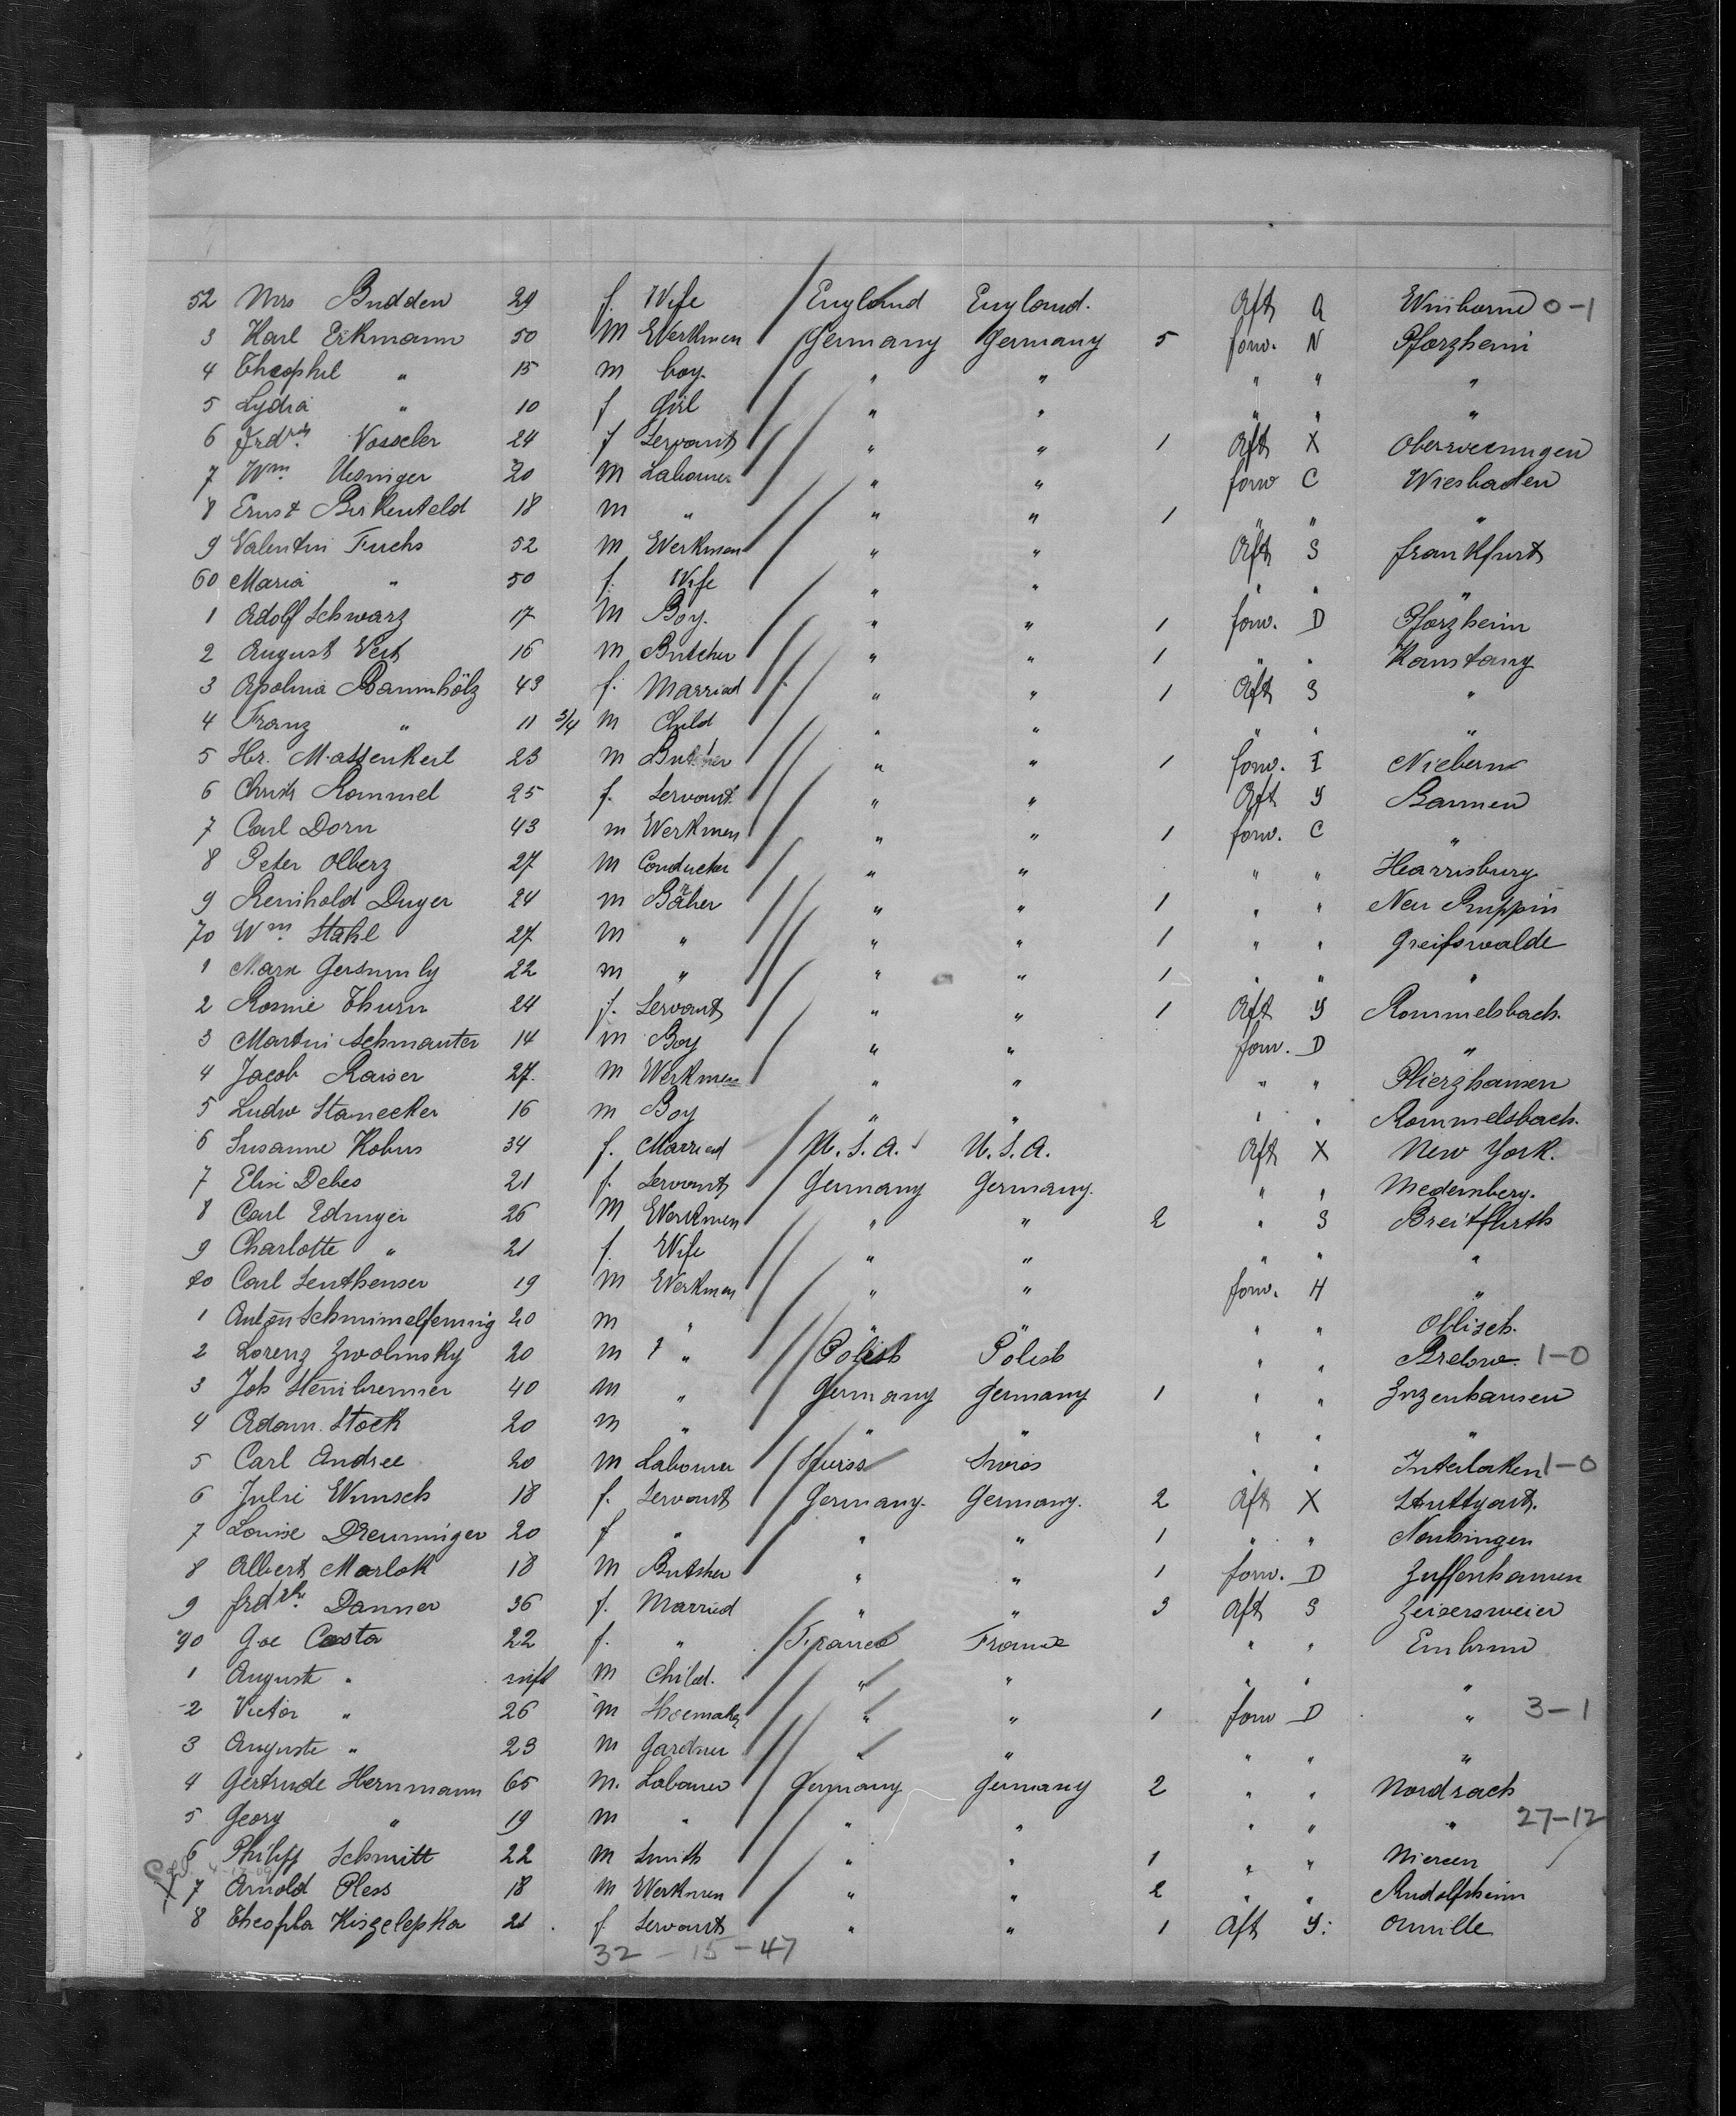 52 Mrs Budden 29 f. Wife England England. Aft A Winborne 0-1
3 Karl Erkmann 50 M Werkmen Germany Germany 5 forw. N Pforzheim
4 Theophil " 15 m boy. " " " " "
5 Lydia " 10 f Girl " " " " "
6 Frdrch. Vosseler 24 f Servant " " 1 Aft X Oberweningen
7 Wm. Uesinger 20 M Labourer " " forw C Wiesbaden
8 Ernst Birkenfeld 18 m " " " 1 " " "
9 Valentin Fuchs 52 M Werkmen " " Aft S Frankfurt
60 Maria " 50 f. Wife " " " " "
1 Adolf Schwarz 17 M Boy. " " 1 forw. D Pforzheim
2 August Veit 16 m Butcher " " 1 " " Konstanz
3 Apolonia Baumhölz 43 f. Married " " 1 Aft S "
4 Franz " 11 3/4 M Child " " " " "
5 Hr. Massenkeil 23 m Butcher " " 1 forw. I Niebern
6 Christ Rommel 25 f. Servant " " Aft Y Barmen
7 Carl Dorn 43 m Werkmen " " 1 forw. C "
8 Peter Olberz 27 M Conducter " " " " Hearrisburg
9 Reinhold Duyer 24 m Bäker " " 1 " " Neu Ruppin
70 Wm. Stahl 27 M " " " 1 " " Greifswalde
1 Marx 22 m " " " 1 " " "
2 Rosine Thurn 24 f. Servant " " 1 Aft Y Rommelsbach.
3 Martin Schmauter 14 m Boy " " forw. D "
4 Jacob Raiser 27. M Werkmen " " " " Pliezhausen
5 Ludw Stanecker 16 m Boy " " " " Rommelsbach.
6 Susanne Kobus 34 f. Married U.S.A. U.S.A. Aft X New York.
7 Elisi Debes 21 f. Servant Germany Germany. " " Medernberg.
8 Carl Edinger 26 M Werkmen " " 2 " S Breitfurth
9 Charlotte " 21 f. Wife " " " " "
80 Carl Leuthenser 19 M Werkmen " " forw. H "
1 Anton Schimmelfennig 20 m " " " " " Oblisch.
2 Lorenz Zwolinsky 20 m " Polish Polish " " Brelow. 1-0
3 Joh Steinbrenner 40 m " Germany Germany 1 " " Inzenhausen
4 Adam. Stock 20 m " " " " " "
5 Carl Andree 20 M Labourer Swiss Swiss " " Interlaken 1-0
6 Julie Wunsch 18 f. Servant Germany. Germany. 2 Aft X Stuttgart.
7 Louise Dreuninger 20 f " " " 1 " " Nonbingen
8 Albert Marlok 18 M Butsher " " 1 forw. D Zuffenhausen
9 frdrke. Danner 36 f. Married " " 3 Aft S Zeisersweier
90 Goe Costa 22 f. " France France " " Embrun
1 Auguste " inft M Child. " " " " "
2 Victor " 26 m Shoemaker " " 1 forw D " 3-1
3 Auguste " 23 m Gardner " " " " "
4 Gertrude Hernmann 65 m. Labourer Germany Germany 2 " " Nordrach
5 Georg " 19 m " " " " " " 27-12
6 Philipp Schmitt 22 M Smith " " 1 " "
X 7 Arnold Pless 18 M Werkmen " " 2 " " Rudolfsheim
8 Theophla Kiszelepka 21 f. Servant " " 1 Aft Y. Orville
32-15-47